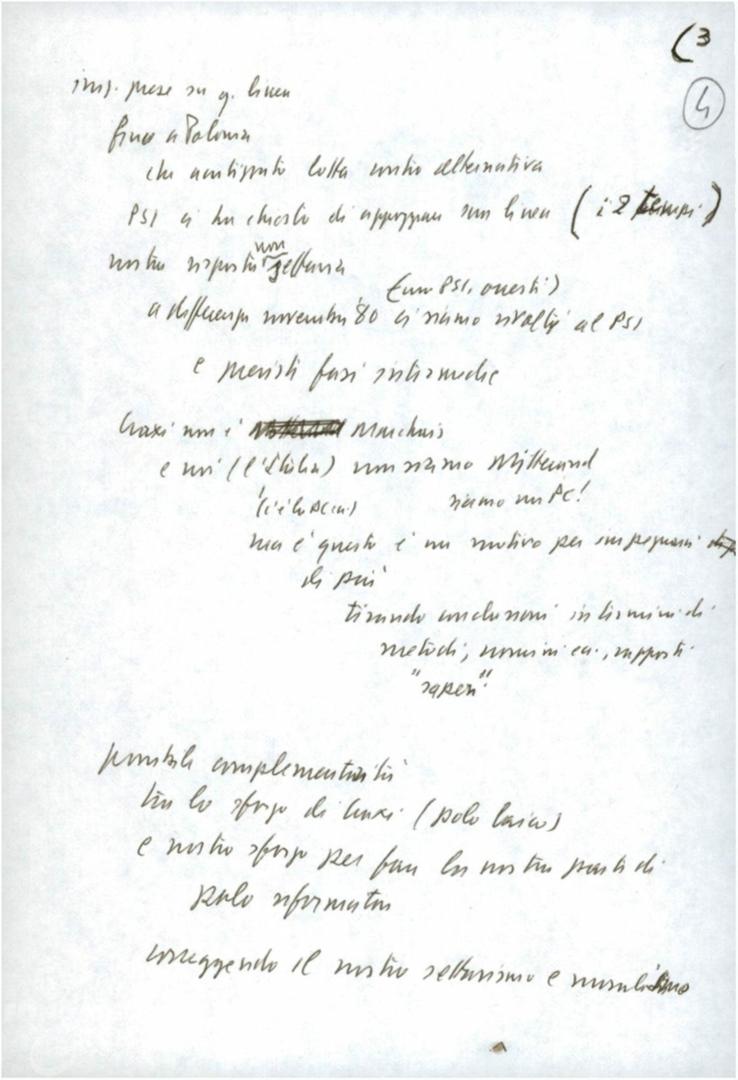 (3
4
imp. prese su q. linea
fino a Polonia
che anticipato lotta contro alternativa
PSI ci ha chiesto di appoggiare sua linea (i 2 tempi)
nostra risposta non settaria
(con PSI, onesti)
a differenza novembre '80 ci siamo rivolti al PSI
e previsti fasi intermedie
Craxi non è Marchais
e noi (l'Italia) non siamo Mitterand
(c'è la DC in) siamo un PC!
ma è questo è un motivo per impegnarsi
di più
tirando conclusioni in termini di
metodi, uomini ecc., rapporti
"saperi"
possibile complementarità
tra lo sforzo di Craxi (polo laico)
e nostro sforzo per fare la nostra parte di
polo riformatore
correggendo il nostro settarismo e moralismo